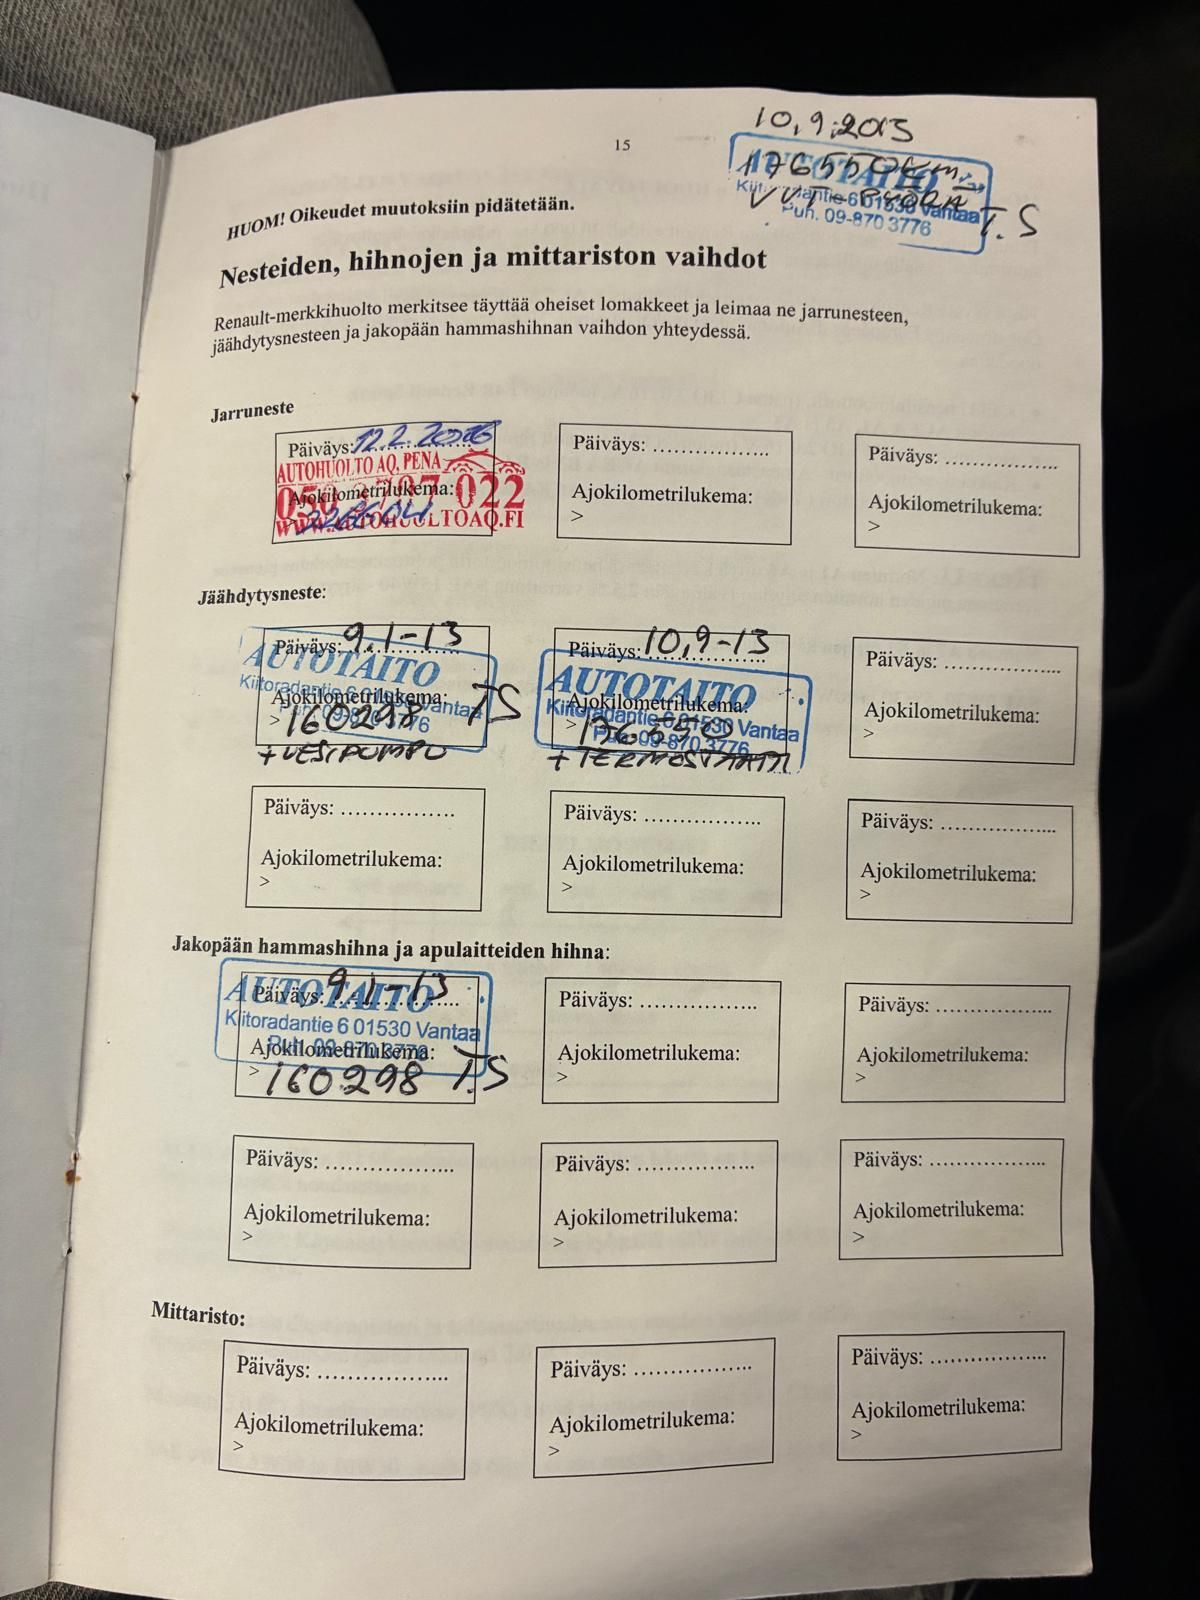 15
10.9.2013
176550KM
VVT-PYÖRÄ T.S
AUTOTAITO
Kiitoradantie 6 01530 Vantaa
Puh. 09-870 3776
HUOM! Oikeudet muutoksiin pidätetään.
Nesteiden, hihnojen ja mittariston vaihdot
Renault-merkkihuolto merkitsee täyttää oheiset lomakkeet ja leimaa ne jarrunesteen,
jäähdytysnesteen ja jakopään hammashihnan vaihdon yhteydessä.
Jarruneste
Päiväys: 12.2.2016
AUTOHUOLTO AQ, PENA
Ajokilometrilukema:
022
>
WWW.AUTOHUOLTOAQ.FI
Päiväys: ..................
Ajokilometrilukema:
>
Päiväys: ..................
Ajokilometrilukema:
>
Jäähdytysneste:
Päiväys: 9.1-13
AUTOTAITO
Kiitoradantie 6 01530 Vantaa
Ajokilometrilukema:
Puh. 09-870 3776
> 160298 TS
+VESIPUMPU
Päiväys: 10.9-13
AUTOTAITO
Ajokilometrilukema:
Kiitoradantie 6 01530 Vantaa
Puh. 09-870 3776
> 176550
+TERMOSTAATTI
Päiväys: ..................
Ajokilometrilukema:
>
Päiväys: ..................
Ajokilometrilukema:
>
Päiväys: ..................
Ajokilometrilukema:
>
Päiväys: ..................
Ajokilometrilukema:
>
Jakopään hammashihna ja apulaitteiden hihna:
Päiväys: 9.1-13
AUTOTAITO
Kiitoradantie 6 01530 Vantaa
Puh. 09-870 3776
Ajokilometrilukema:
> 160298 T.S
Päiväys: ..................
Ajokilometrilukema:
>
Päiväys: ..................
Ajokilometrilukema:
>
Päiväys: ..................
Ajokilometrilukema:
>
Päiväys: ..................
Ajokilometrilukema:
>
Päiväys: ..................
Ajokilometrilukema:
>
Mittaristo:
Päiväys: ..................
Ajokilometrilukema:
>
Päiväys: ..................
Ajokilometrilukema:
>
Päiväys: ..................
Ajokilometrilukema:
>